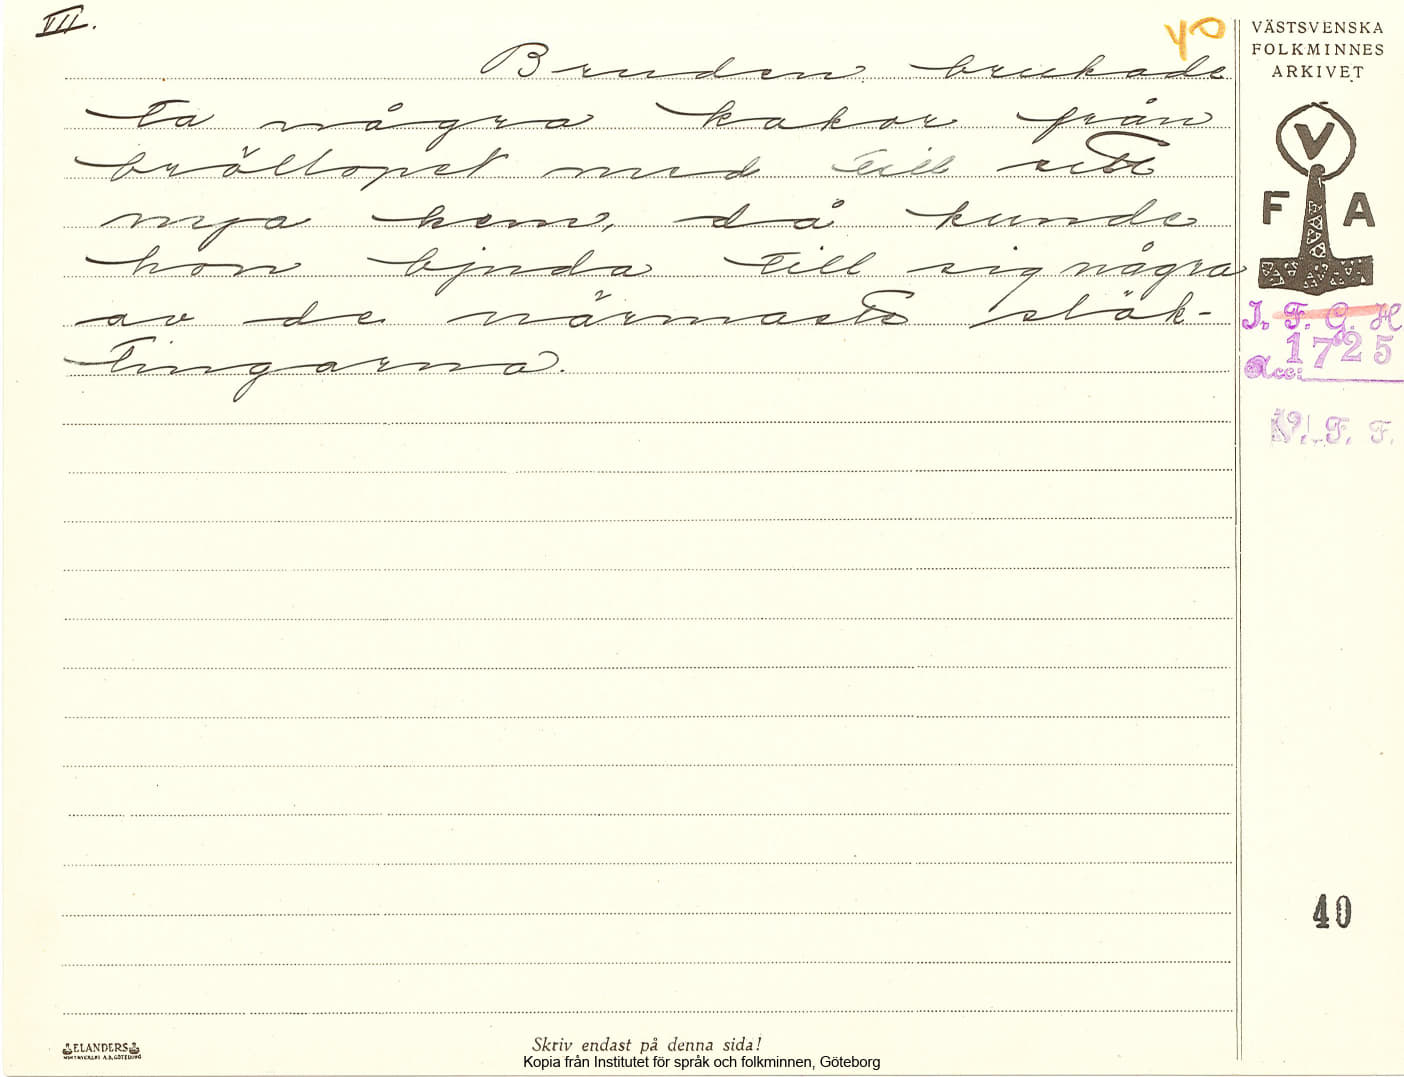 VII.
40
Bruden brukade
ta några kakor från
bröllopet med till sitt
nya hem, då kunde
hon bjuda till sig några
av de närmaste släk-
tingarna.
VÄSTSVENSKA
FOLKMINNES
ARKIVET
V
F A
I. F. G. H
1725
Acc:
V. F. F.
40
ELANDERS
Skriv endast på denna sida!
Kopia från Institutet för språk och folkminnen, Göteborg